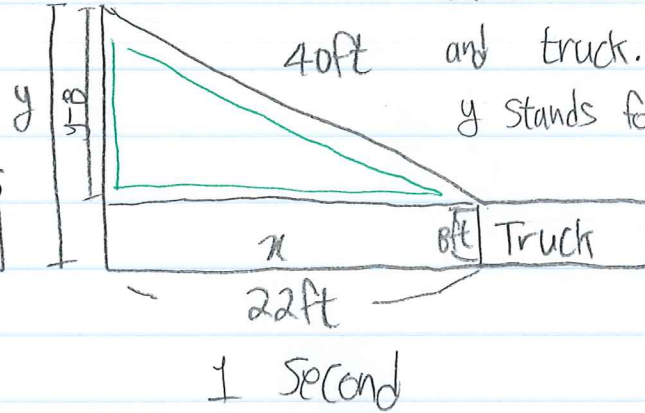 40ft and truck.
y y-8 y stands fo
x 8ft Truck
22ft
1 Second